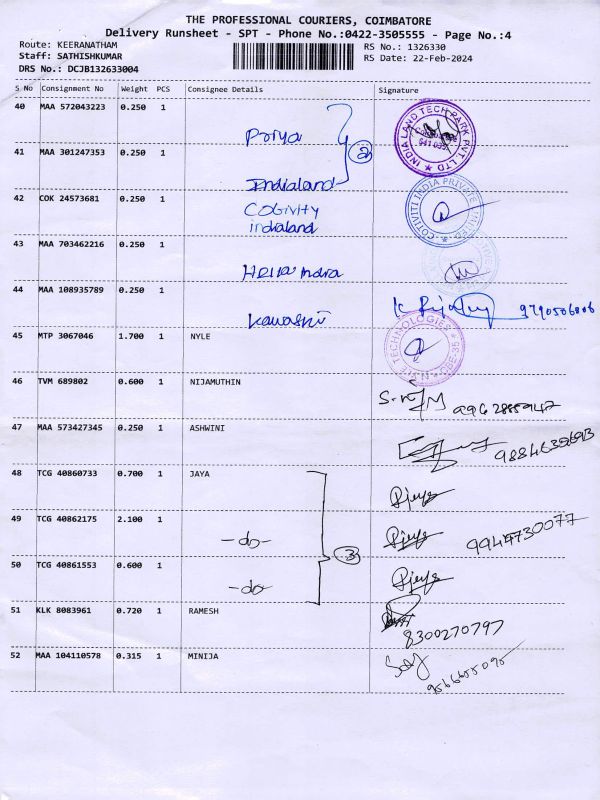 THE PROFESSIONAL COURIERS, COIMBATORE
Delivery Runsheet - SPT - Phone No.:0422-3505555 - Page No.:4
Route: KEERANATHAM
RS No.: 1326330
Staff: SATHISHKUMAR
RS Date: 22-Feb-2024
DRS No.: DCJB132633004
S No Consignment No Weight PCS Consignee Details Signature
40 MAA 572043223 0.250 1 Priya
INDIA LAND TECH PARK PVT. LTD
41 MAA 301247353 0.250 1 Indialand
2
42 COK 24573681 0.250 1 COGIVITY
indialand
COTIVITI INDIA PRIVATE LIMITED
43 MAA 703462216 0.250 1
44 MAA 108935789 0.250 1
9790506806
45 MTP 3067046 1.700 1 NYLE
NYLE TECHNOLOGIES CBE-35
46 TVM 689802 0.600 1 NIJAMUTHIN
47 MAA 573427345 0.250 1 ASHWINI
48 TCG 40860733 0.700 1 JAYA Rjeya
49 TCG 40862175 2.100 1 -do- Rjeya 9944730077
3
50 TCG 40861553 0.600 1 -do- Rjeya
51 KLK 8083961 0.720 1 RAMESH
8300270797
52 MAA 104110578 0.315 1 MINIJA